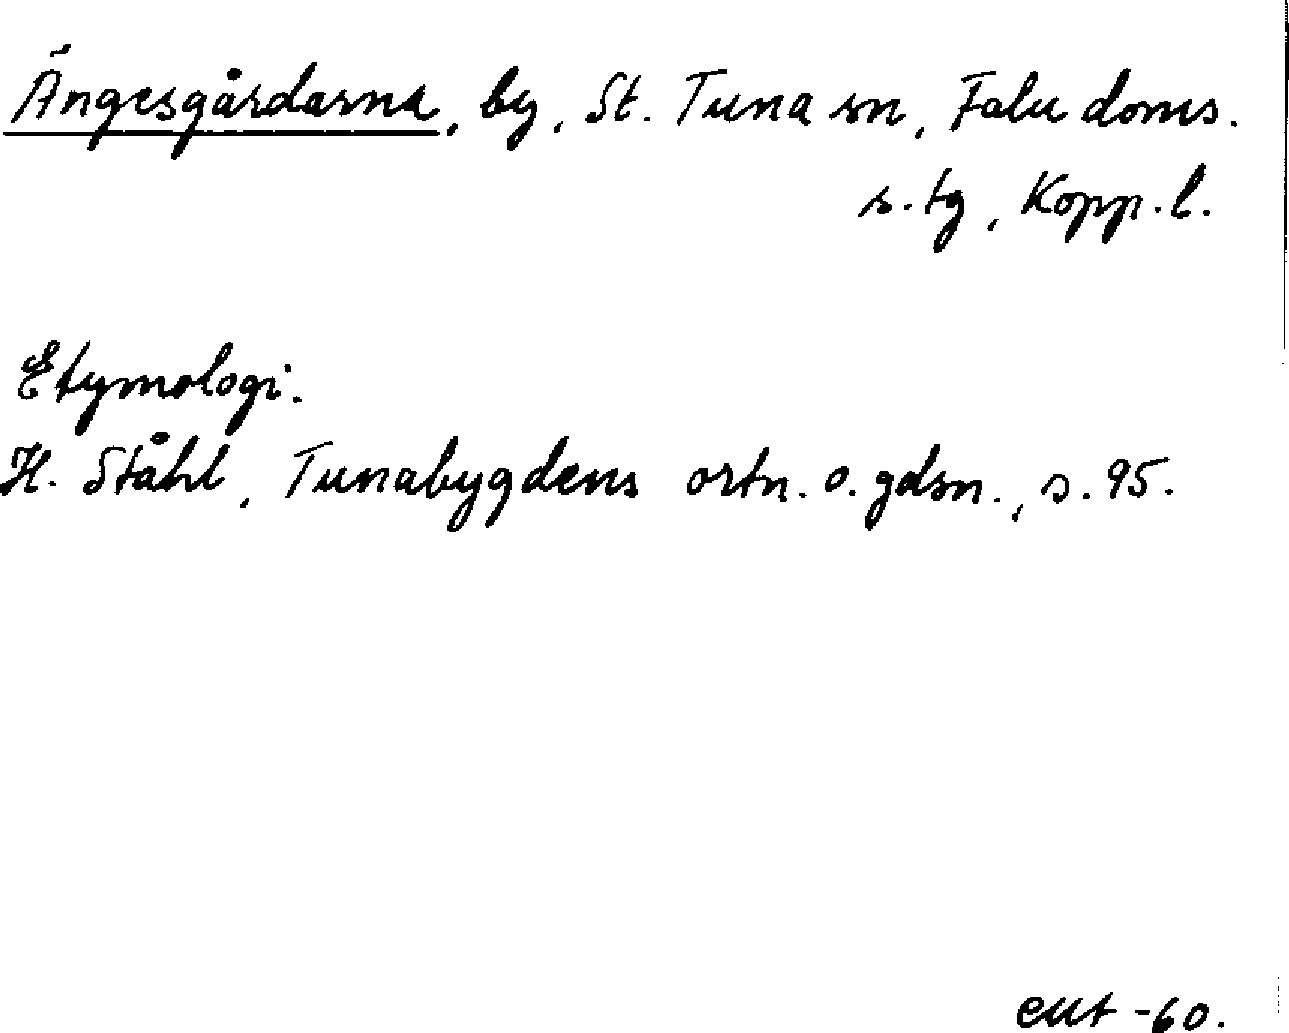 Ängesgårdarna, by, St. Tuna sn, Falu doms.
s. tg, Kopp. l.
Etymologi.
H. Ståhl, Tunabygdens ortn. o. gdsn., s. 95.
-60.